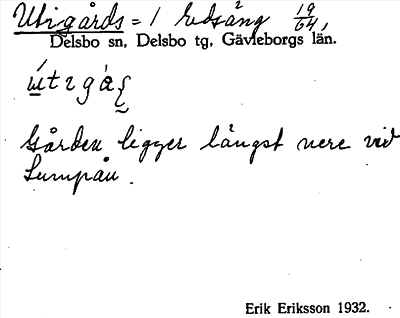 Utigårds = 1 Edsäng 19/64,
Delsbo sn, Delsbo tg, Gävleborgs län.
Gården ligger längst nere vid
Lumpån.
Erik Eriksson 1932.